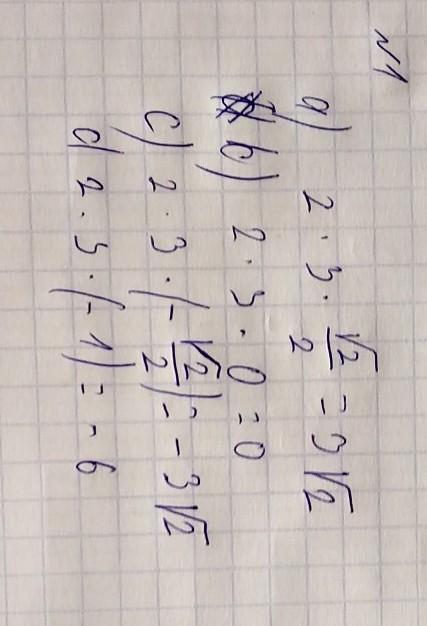 №1
a) 2 · 3 · √2/2 = 3√2
b) 2 · 3 · 0 = 0
c) 2 · 3 · (-√2/2) = -3√2
d) 2 · 3 · (-1) = -6